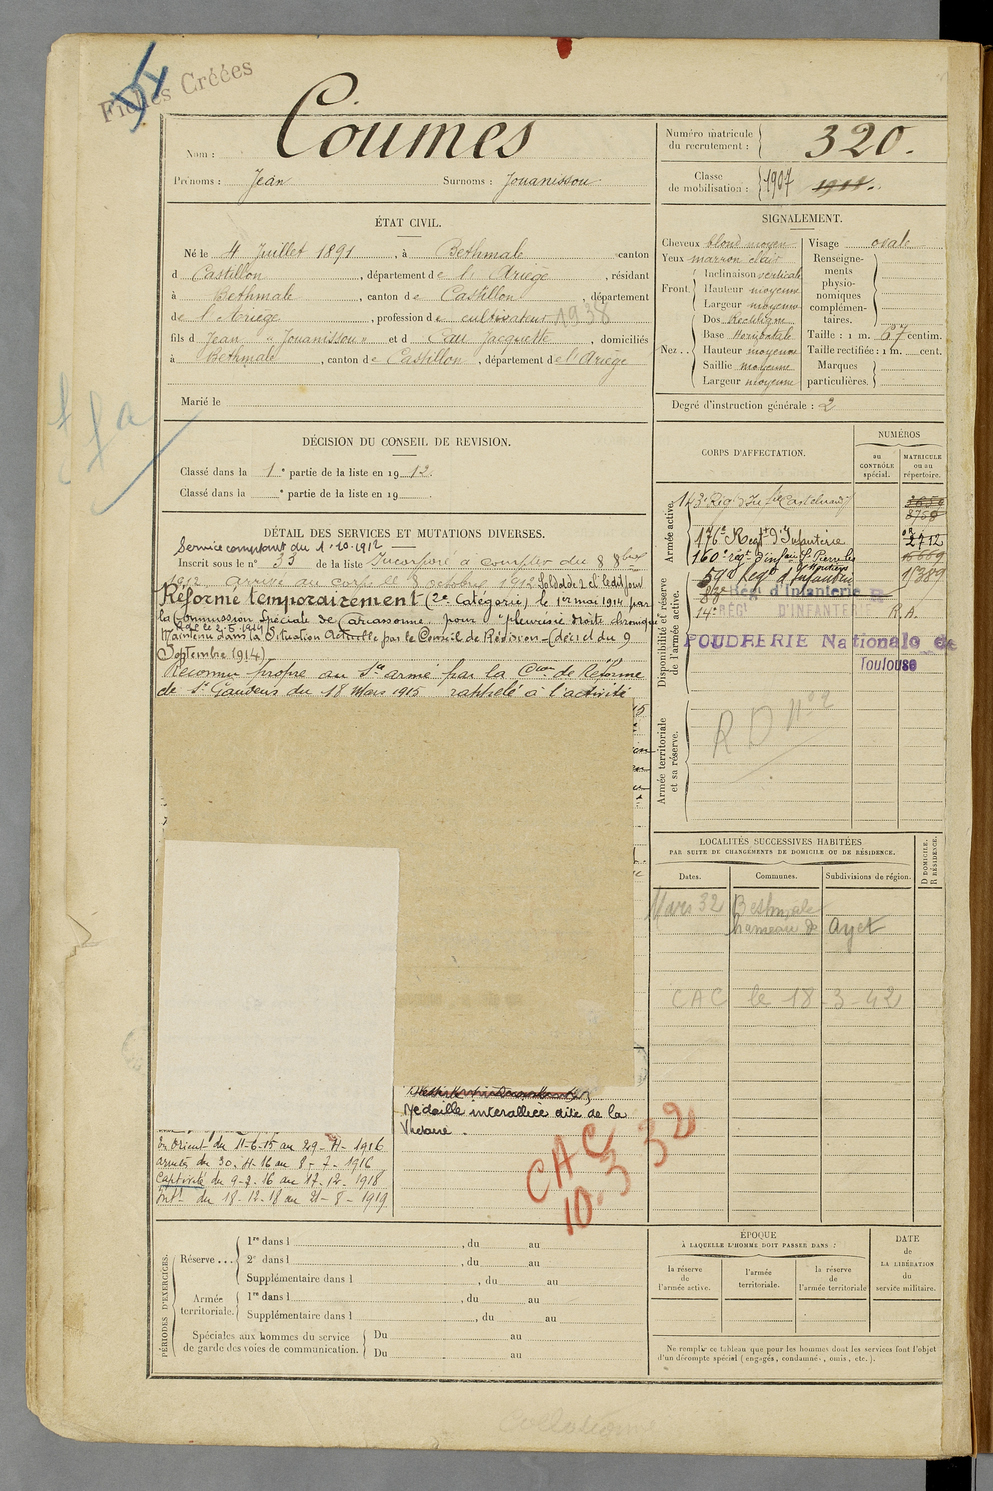 Fiches Créées
Nom : Coumes
Prénoms : Jean Surnoms : Jouanissou
Numéro matricule du recrutement : 320.
Classe de mobilisation : 1907 1911.
ÉTAT CIVIL.
Né le 4 Juillet 1891, à Bethmale canton
d Castillon, département de l'Ariège, résidant
à Bethmale, canton de Castillon, département
de l'Ariège, profession de cultivateur 1938
fils d Jean "Jouanissou" et d Cau Jacquette, domiciliés
à Bethmale, canton de Castillon, département de l'Ariège
Marié le
SIGNALEMENT.
Cheveux blond moyen
Yeux marron clair
Front. Inclinaison verticale
Hauteur moyenne
Largeur moyenne
Nez.. Dos Rectiligne
Base Horizontale
Hauteur moyenne
Saillie moyenne
Largeur moyenne
Visage ovale
Renseignements physionomiques complémentaires.
Taille : 1 m. 67 centim.
Taille rectifiée : 1 m. cent.
Marques particulières.
Degré d'instruction générale : 2
DÉCISION DU CONSEIL DE REVISION.
Classé dans la 1e partie de la liste en 1912.
Classé dans la e partie de la liste en 19 .
CORPS D'AFFECTATION.
NUMÉROS
au CONTRÔLE spécial.
MATRICULE ou au répertoire.
Armée active.
143e Rég. d'Inf. Castelnaudary
176e Régt d'Infanterie 2712
160e régt d'infrie
59e Régt d'Infanterie 11389
83e Rég! d'Infanterie
14e RÉG! D'INFANTERIE R.A.
POUDRERIE Nationale de
Toulouse
Disponibilité et réserve de l'armée active.
Armée territoriale et sa réserve.
R D n° 2
DÉTAIL DES SERVICES ET MUTATIONS DIVERSES.
Service comptant du 1-10-1912
Inscrit sous le n° 33 de la liste Incorporé à compter du 8 8bre
1912 arrivé au corps le 8 octobre 1912 Soldat de 2e cl. ledit jour
Réformé temporairement (2e Catégorie) le 1er mai 1914 par
la Commission Spéciale de Carcassonne pour "pleurésie droite chronique
Rayé le 2-5-1914
Maintenu dans la Situation Actuelle par le Conseil de Révision (décret du 9
Septembre 1914)
Reconnu propre au Sce armé par la Cion de Réforme
de St Gaudens du 18 Mars 1915 rappelé à l'activité
LOCALITÉS SUCCESSIVES HABITÉES
PAR SUITE DE CHANGEMENTS DE DOMICILE OU DE RÉSIDENCE.
Dates. Communes. Subdivisions de région. D DOMICILE. R RÉSIDENCE.
Mars 32 Bethmale
hameau de Ayet
CAC le 18-3-42
Médaille interalliée dite de la
Victoire.
CAC
10.3 32
En Orient du 11-6-15 au 29-4-1916
armées du 30-4-16 au 8-7-1916
Captivité du 9-7-16 au 17-12-1918
Intr du 18-12-18 au 21-8-1919
PÉRIODES D'EXERCICES.
Réserve ... 1re dans l , du au
2e dans l , du au
Supplémentaire dans l , du au
Armée territoriale. 1re dans l , du au
Supplémentaire dans l , du au
Spéciales aux hommes du service de garde des voies de communication. Du au
Du au
ÉPOQUE
À LAQUELLE L'HOMME DOIT PASSER DANS :
la réserve de l'armée active.
l'armée territoriale.
la réserve de l'armée territoriale
DATE de LA LIBÉRATION du service militaire.
Ne remplir ce tableau que pour les hommes dont les services font l'objet
d'un décompte spécial (engagés, condamnés, omis, etc.).